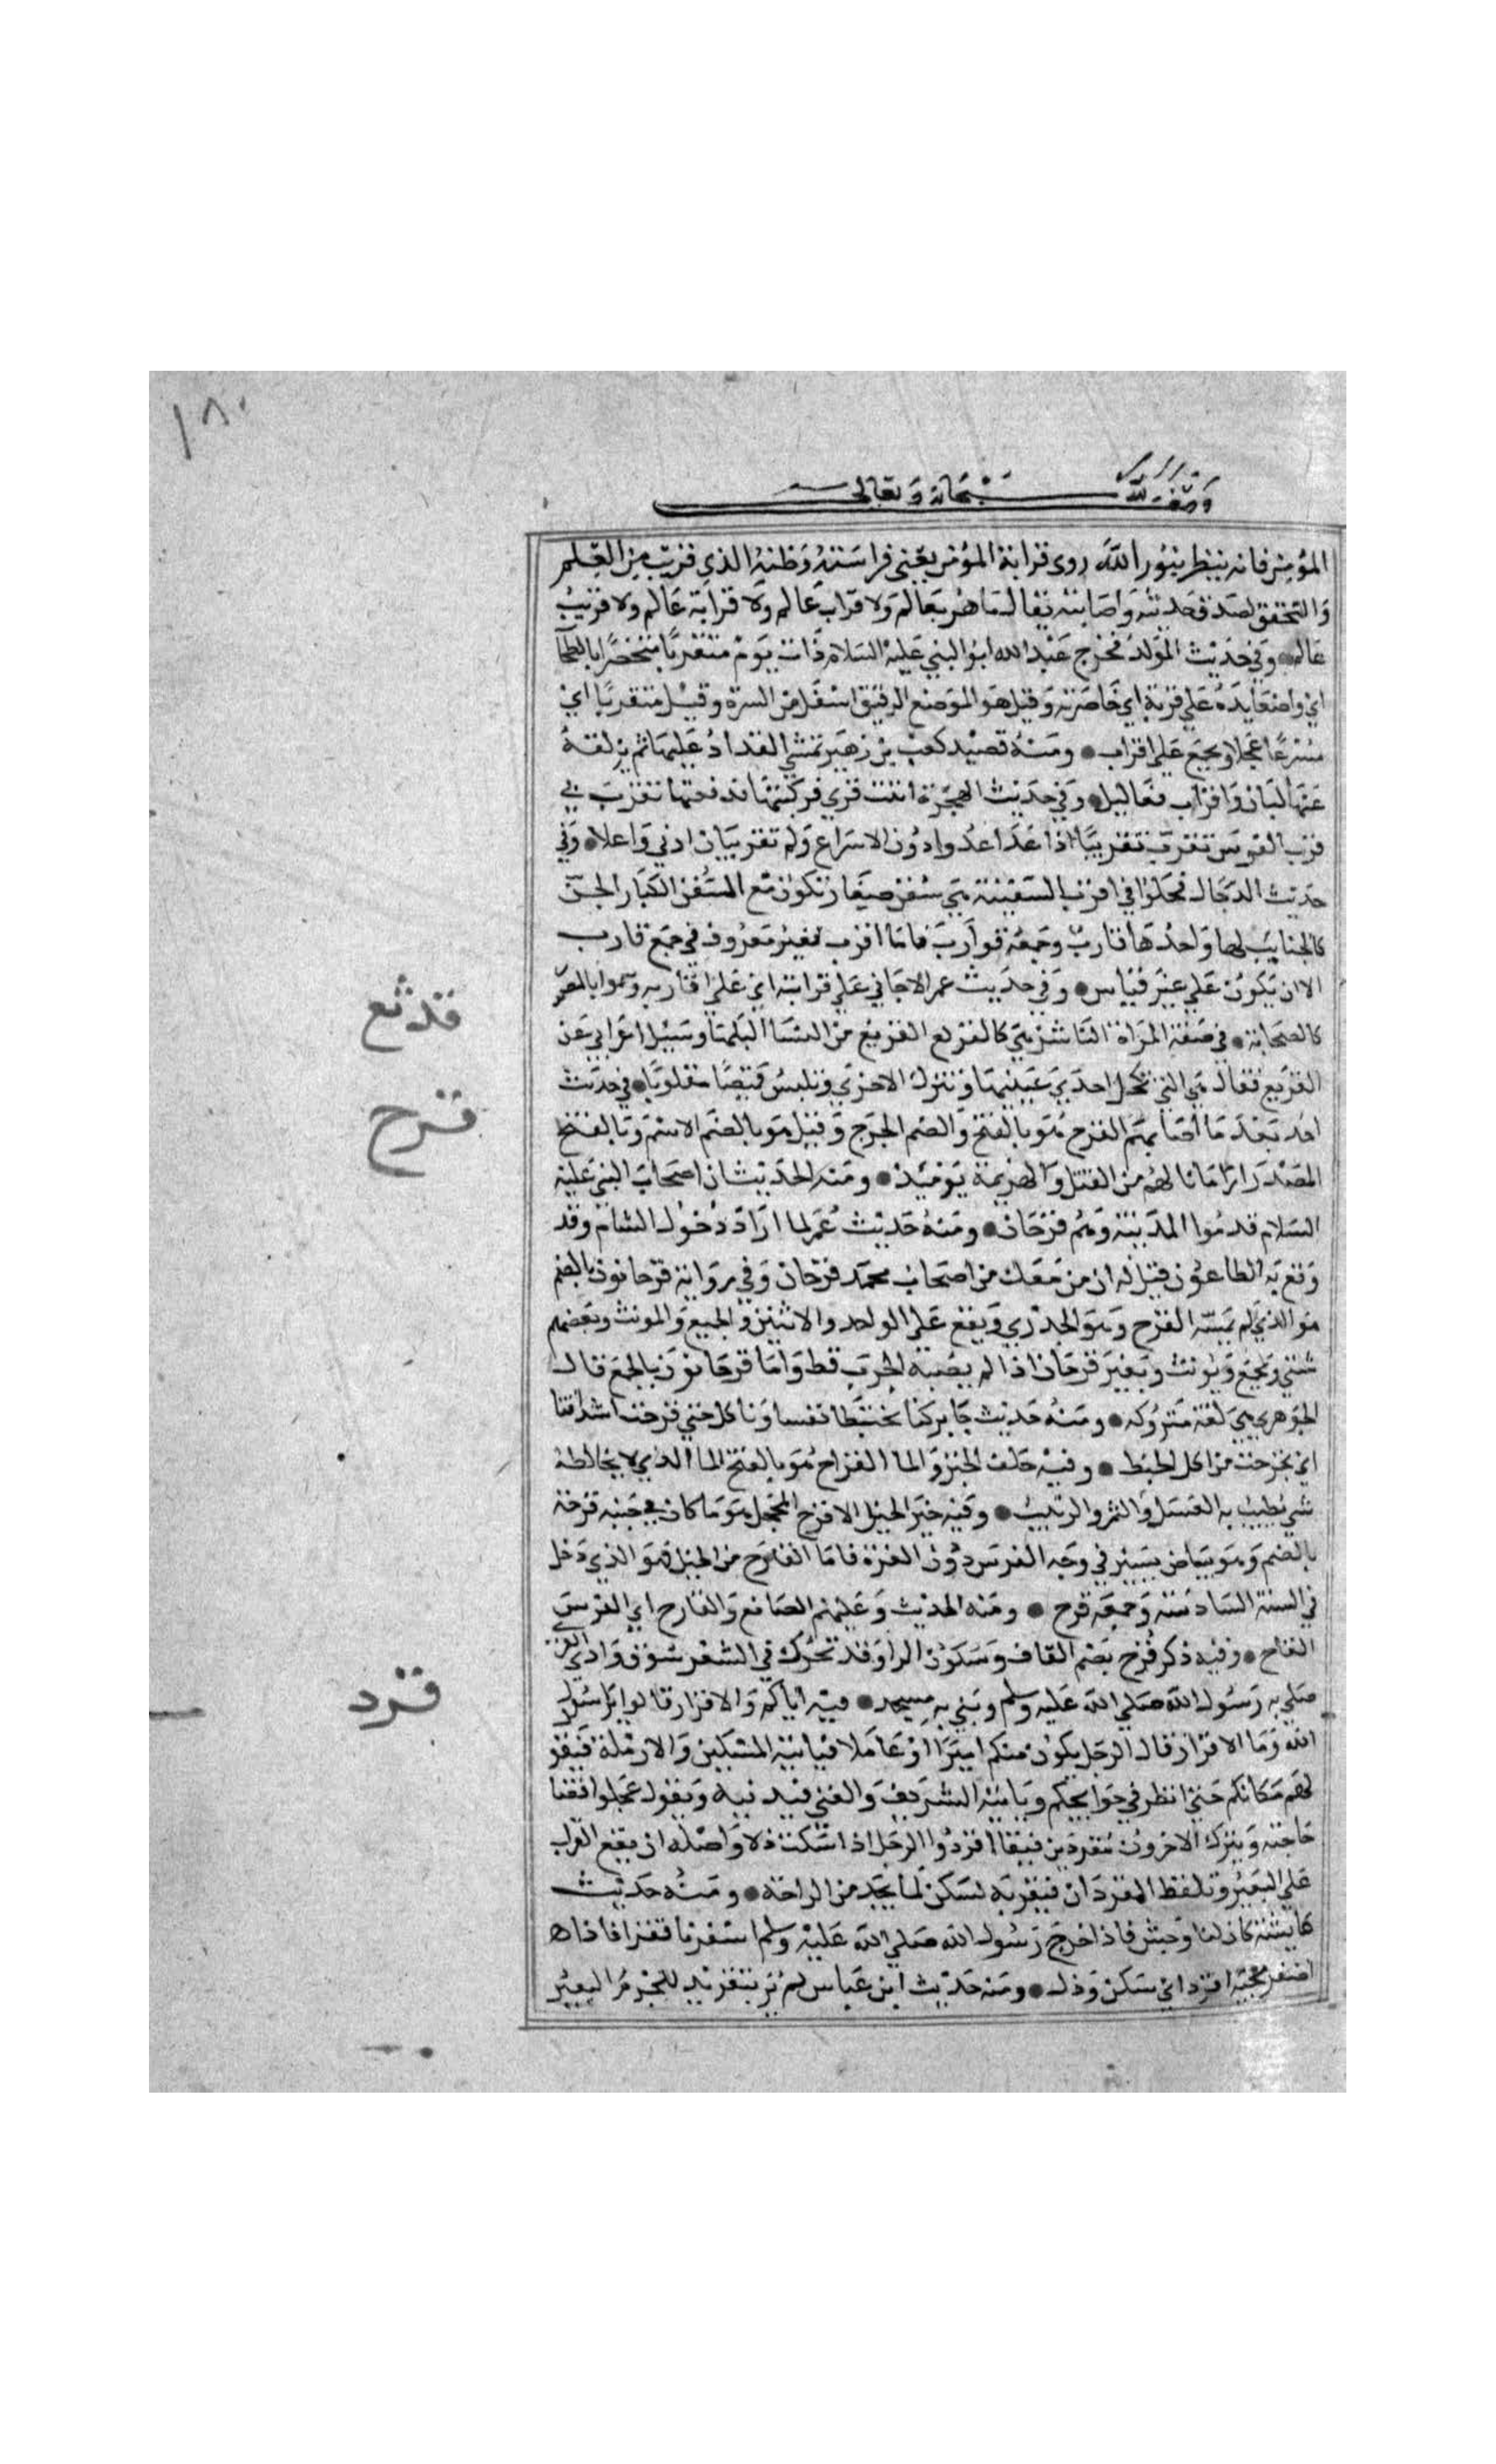 ١٨٠
وقف لله سبحانه وتعالى
المؤمن فانه ينظر بنور الله روى قرابة المؤمن يعني فراسته وظنه الذي قريب من العلم
والتحقق لصدق حدسه واصابته يقال ما هو بعالم ولا قراب عالم ولا قرابة عالم ولا قريب
عالم وفي حديث المولد فخرج عبد الله ابو النبي عليه السلام ذات يوم متقربا متخصرا بالبطحا
اي واضعا يده علي قربه اي خاصرته وقيل هو الموضع الرقيق اسفل من السرة وقيل متقربا اي
مسرعا عجلا ويجمع علي اقراب ومنه قصيد كعب بن زهير تمشي القراد عليها ثم يزلقه
عنها لبان واقراب فعاليل وفي حديث الهجرة اتيت فرسي فركبتها فدفعتها تقرب بي
قرب الفرس تقرب تقريبا اذا عدا عدوا دون الاسراع وله تقريبان ادني واعلا وفي
حديث الدجال فجلوا في اقرب السفينة هي سفن صغار تكون مع السفن الكبار البحرية
كالجنايب لها واحدها قارب وجمعه قوارب فاما اقرب فغير معروف في جمع قارب
الا ان يكون علي غير قياس وفي حديث عمر الا حامي علي قرابته اي علي اقاربه وسموا بالمصدر
كالصحابة في صفة المراة الناشز هي كالقرثع القرثع من النسا البلها وسيل اعرابي عن
القرثع فقال هي التي تكحل احدي عينيها وتترك الاخري وتلبس قميصا مقلوبا في حديث
احد بعد ما اصابهم القرح هو بالفتح والضم الجرح وقيل هو بالضم الاسم وبالفتح
المصدر اراد ما نالهم من القتل والهزيمة يوميذ ومنه الحديث ان اصحاب النبي عليه
السلام قدموا المدينة وهم قرحان ومنه حديث عمر لما اراد دخول الشام وقد
وقع به الطاعون قيل له ان من معك من اصحاب محمد قرحان وفي رواية قرحانون بالضم
هو الذي لم يمسه القرح وهو الجدري ويقع علي الواحد والاثنين والجميع والمونث وبعضهم
يثني ويجمع ويونث وبعير قرحان اذا لم يصبه الجرب قط واما قرحانون بالجمع فقال
الجوهري هي لغة متروكه ومنه حديث جابر كنا نختبط بقسينا وناكل حتي قرحت اشداقنا
اي تجرحت من اكل الخبط وفيه جلف الخبز والما القراح هو بالفتح الما الذي لا يخالطه
شي يطيب به العسل والتمر والزبيب وفيه خير الخيل الاقرح المحجل هو ما كان في جبهته قرحة
بالضم وهو بياض يسير في وجه الفرس دون الغرة فاما القارح من الخيل فهو الذي دخل
في السنة السادسة وجمعه قرح ومنه الحديث وعليهم الصالغ والقارح اي الفرس
القارح وفيه ذكر قرح بضم القاف وسكون الرا وقد تحرك في الشعر سوق وادي القري
صلي به رسول الله صلي الله عليه وسلم وبني به مسجد فيه اياكم والاقراد قالوا يا رسول
الله وما الاقراد قال الرجل يكون منكم اميرا او عاملا فياتيه المسكين والارملة فيقول
لهم مكانكم حتي انظر في حوايجكم وياتيه الشريف والغني فيدنيه ويقول عجلوا قضا
حاجته ويترك الاخرون مقردين فيقال اقردوا الرجل اذا سكت ذلا واصله ان يقع الغراب
علي البعير وتلقط القردان فيقر به لسكن لما يجد من الراحة ومنه حديث
عايشة كان لنا وحش فاذا خرج رسول الله صلي الله عليه وسلم اسعرنا قفزا فاذا
احضر مجيه اقرد اي سكن وذل ومنه حديث ابن عباس لم ير بتقريد المحرم البعير
قرثع
قرح
قرد